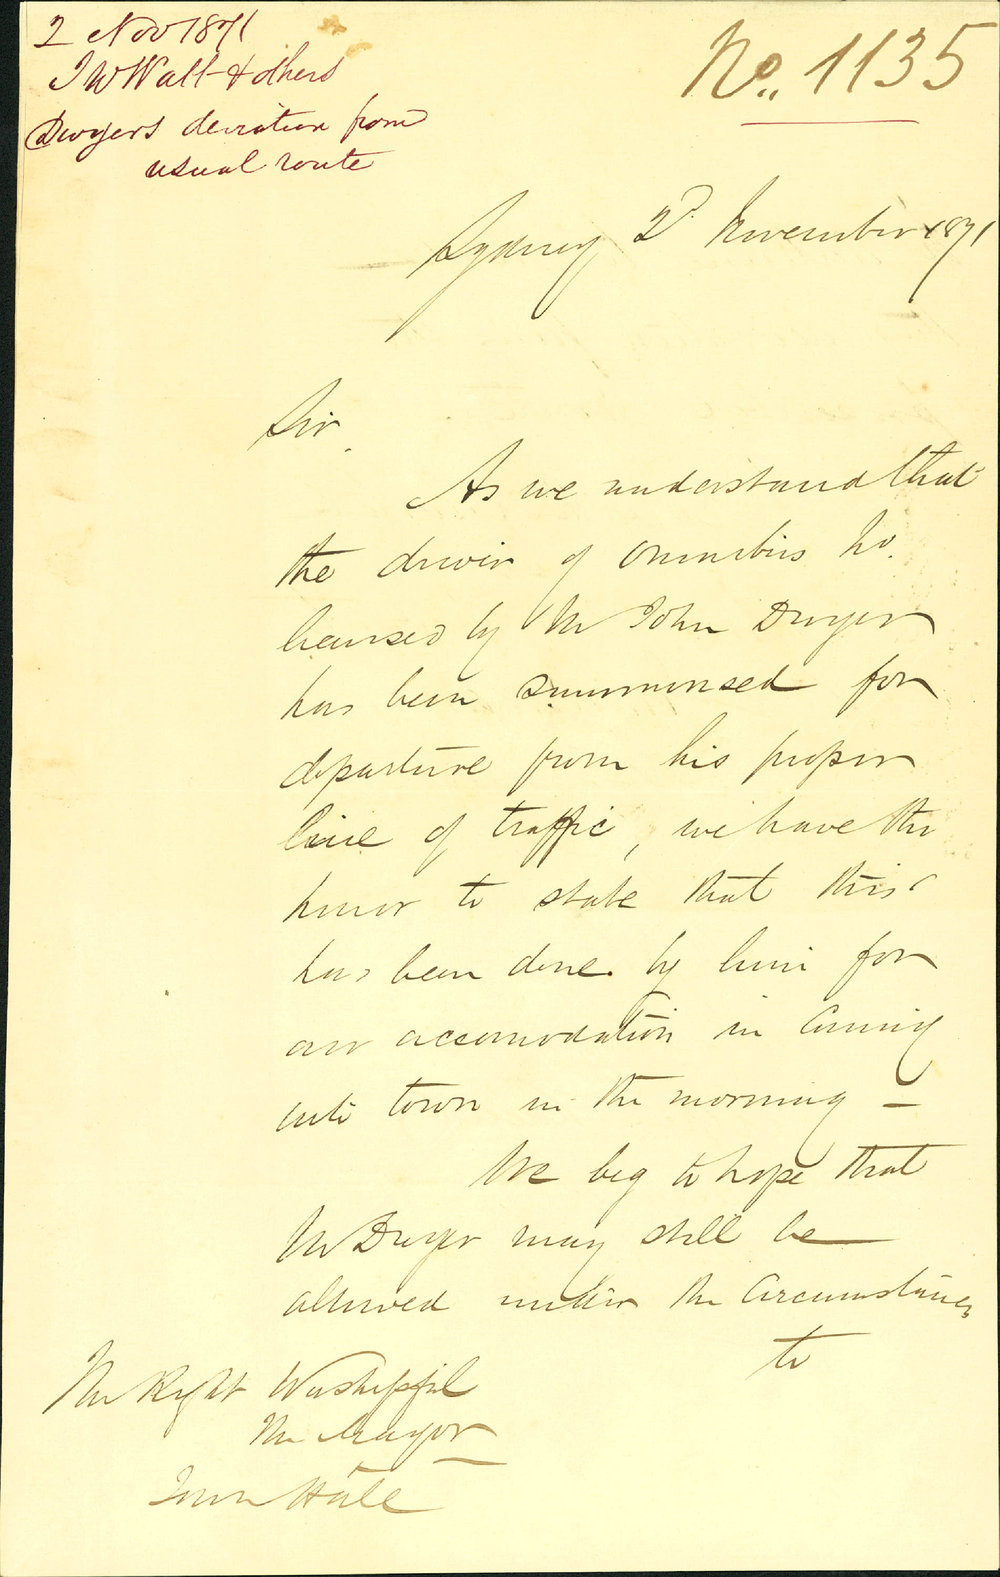 2 Nov 1871
J W Watt & others
Dwyers deviation from
usual route
No. 1135
Sydney 2d. November 1871
Sir
As we understand that
the driver of Omnibus No.
licensed by Mr John Dwyer
has been summonsed for
departure from his proper
line of traffic, we have the
honor to state that this
has been done by him for
our accomodation in coming
into town in the morning —
We beg to hope that
Mr Dwyer may still be
allowed under the circumstances
to
The Right Worshipful
The Mayor
Town Hall